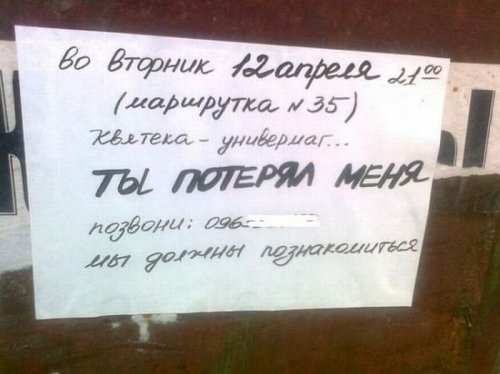 во вторник 12 апреля 21⁰⁰
(маршрутка N 35)
Квятека - универмаг...
ТЫ ПОТЕРЯЛ МЕНЯ
позвони: 096
мы должны познакомиться